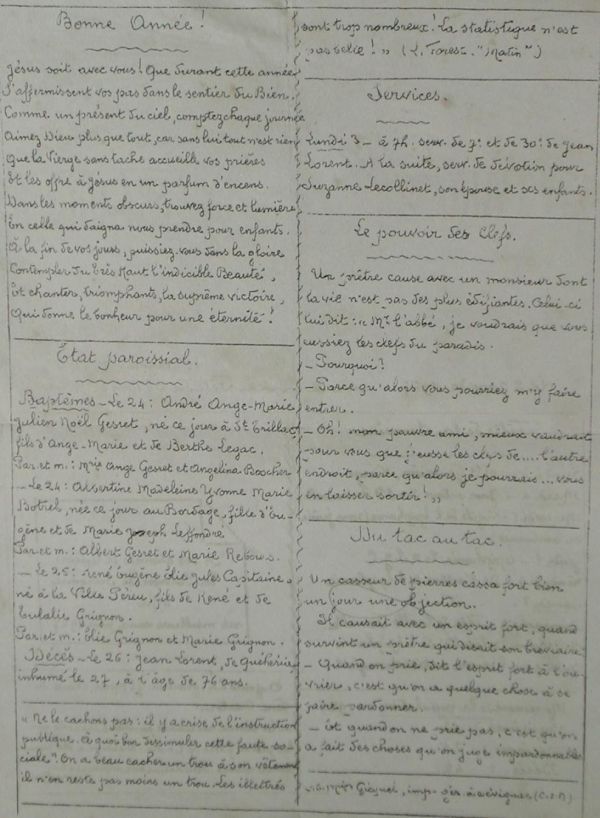 Bonne Année !
Jésus soit avec vous ! Que durant cette année
S'affermissent vos pas dans le sentier du Bien.
Comme un présent du ciel, comptez chaque journée
Aimez Dieu plus que tout, car sans lui tout n'est rien
Que la Vierge sans tache accueille vos prières
Et les offre à Jésus en un parfum d'encens.
Dans les moments obscurs, trouvez force et lumière
En celle qui daigna nous prendre pour enfants.
À la fin de vos jours, puissiez-vous dans la gloire
Contempler du Très Haut l'indicible Beauté,
Et chanter, triomphants, la suprême victoire,
Qui donne le bonheur pour une éternité !
État paroissial.
Baptêmes – Le 24 : André Ange-Marie
Julien Noël Gesret, né ce jour à St Trillac
fils d'Ange-Marie et de Berthe Legac.
Par. et m. : Ange Gesret et Angelina
– Le 24 : Albertine Madeleine Yvonne Marie
Botrel, née ce jour au Bordage, fille d'Eu-
gène et de Marie Joseph Leffondré
Par. et m. : Albert Gesret et Marie Rebours.
– Le 25 : René Eugène Élie Jules Capitaine,
né à la Ville Péreu, fils de René et de
Eulalie Grignon.
Par. et m. : Élie Grignon et Marie Grignon.
Décès – Le 26 : Jean Lorent, de
inhumé le 27, à l'âge de 76 ans.
« Ne le cachons pas : il y a crise de l'instruction
publique. À quoi bon dissimuler cette faute so-
ciale ? On a beau cacher un trou à son vêtement
il n'en reste pas moins un trou. Les illettrés
sont trop nombreux ! La statistique n'est
pas belle ! » (L. Forest. "Matin")
Services.
Lundi 3 – à 7h. serv. de 7e et de 30e de Jean
Lorent. À la suite, serv. de dévotion pour
Suzanne Lecollinet, son époux et ses enfants.
Le pouvoir des clefs.
Un prêtre cause avec un monsieur dont
la vie n'est pas des plus édifiantes. Celui-ci
lui dit : « Mr l'abbé, je voudrais que vous
eussiez les clefs du paradis.
– Pourquoi ?
– Parce qu'alors vous pourriez m'y faire
entrer.
– Oh ! mon pauvre ami, mieux vaudrait
pour vous que j'eusse les clefs de.... l'autre
endroit, parce qu'alors je pourrais... vous
en laisser sortir ! »
Du tac au tac.
Un casseur de pierres cassa fort bien
un jour une objection.
Il causait avec un esprit fort, quand
survint un prêtre qui disait son bréviaire.
– Quand on prie, dit l'esprit fort à l'ou-
vrier, c'est qu'on a quelque chose à se
faire pardonner.
– Et quand on ne prie pas, c'est qu'on
a fait des choses qu'on juge impardonnables
imp. gér. à Sévignac (C.d.N)